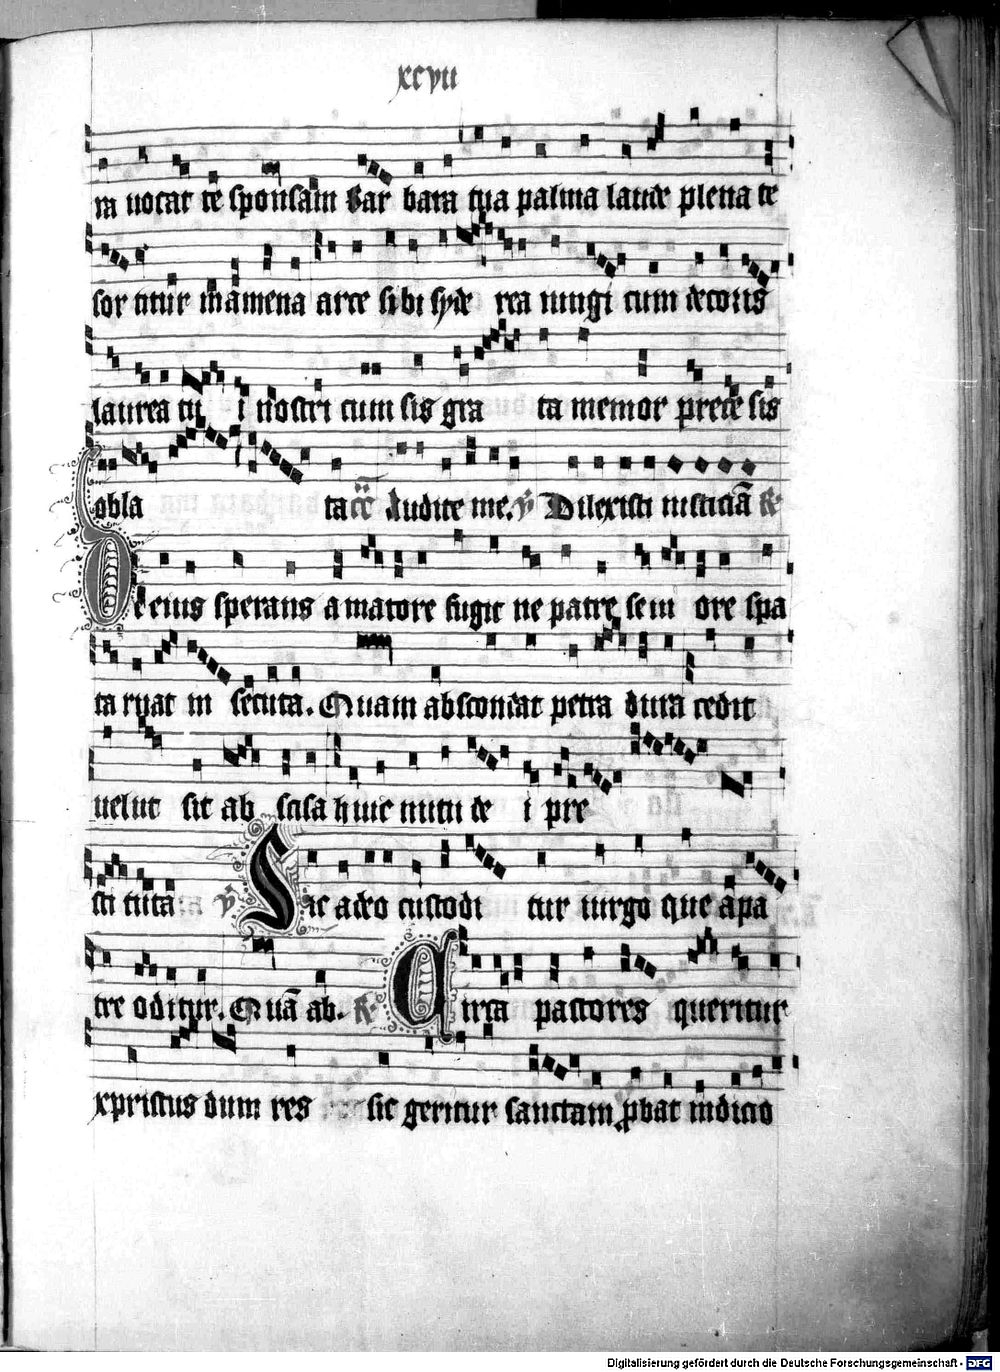 xcvii
ra uocat te sponsam Bar bara tua palma laude plena te
sor titur in amena arce sibi syde rea iungi cum decoris
laurea tu i nostri cum sis gra ta memor prece sis
obla ta Audite me. Dilexisti iusticiā
De eius sperans amatore fugit ne patre seui ore spa
ta ruat in secuta. Quam abscondat petra dura cedit
uelut sit ab scisa huic nutu de i pre
sti tuta Sic adeo custodi tur uirgo que a pa
tre oditur. Quā ab. Circa pastores queritur
xpristus dum res sic geritur sanctam ꝓbat indicio
Digitalisierung gefördert durch die Deutsche Forschungsgemeinschaft - DFG